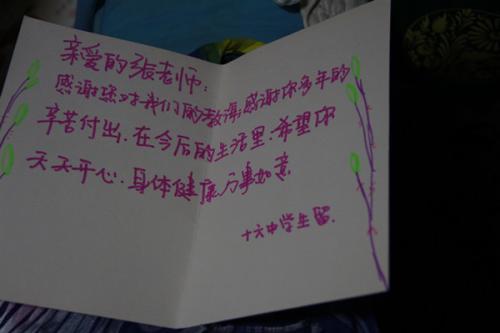 亲爱的張老师:
感谢您对我们的教诲,感谢你多年的
辛苦付出.在今后的生活里.希望你
天天开心.身体健康.万事如意
十六中学生留.